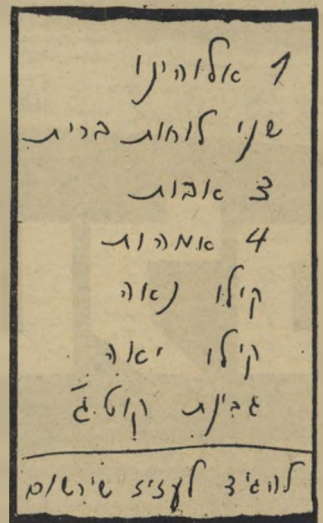 1 אלוהינו
שני לוחות ברית
3 אבות
4 אמהות
קילו נאוה
קילו יאוה
גבינת קוטג'
להגיד לעזיז שירשום